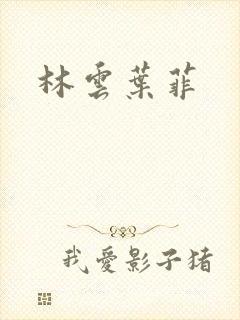 林雲葉菲
我愛影子猪